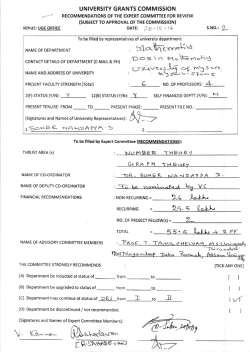 UNIVERSITY GRANTS COMMISSION
RECOMMENDATIONS OF THE EXPERT COMMITTEE FOR REVIEW
(SUBJECT TO APPROVAL OF THE COMMISSION)
VENUE: UGC OFFICE DATE: 20-10-14 S.NO.: 2
To be filled by representatives of university department:
NAME OF DEPARTMENT : Mathematics
CONTACT DETAILS OF DEPARTMENT (E-MAIL & PH) : DOS in Mathematics
NAME AND ADDRESS OF UNIVERSITY : University of Mysore
PRESENT FACULTY STRENGTH (Total) : 6 NO. OF PROFESSORS: 4
2(f) STATUS (Y/N): Y 12(B) STATUS (Y/N): Y SELF FINANCED DEPTT (Y/N): N
PRESENT TENURE: FROM TO PRESENT PHASE: PRESENT FILE NO:
(Signatures and Names of University Representatives):
1. SOMER NANDAPPA D 2.
To be filled by Expert Committee (RECOMMENDATIONS):
THRUST AREA (s) : NUMBER THEORY
GRAPH THEORY
NAME OF CO-ORDINATOR : DR. SOMER NANDAPPA D.
NAME OF DEPUTY CO-ORDINATOR : To be nominated by VC
FINANCIAL RECOMMENDATIONS : NON-RECURRING = 26 lakh
RECURRING = 29.5 lakh
NO. OF PROJECT FELLOW(s) = 2
TOTAL = 55.5 lakh + 2 PF
NAME OF ADVISORY COMMITTEE MEMBERS : Prof T. TAMIL CHELVAM, MS University
THE COMMITTEE STRONGLY RECOMMENDS (TICK ANY ONE)
(A) Department be included at status of from to ( )
(B) Department be upgraded to status of from to ( )
(C) Department may continue at status of DRS from I to II (✓)
(D) Department be discontinued / not recommended. ( )
(Signatures and Names of Expert Committee Members):
V. Kannan